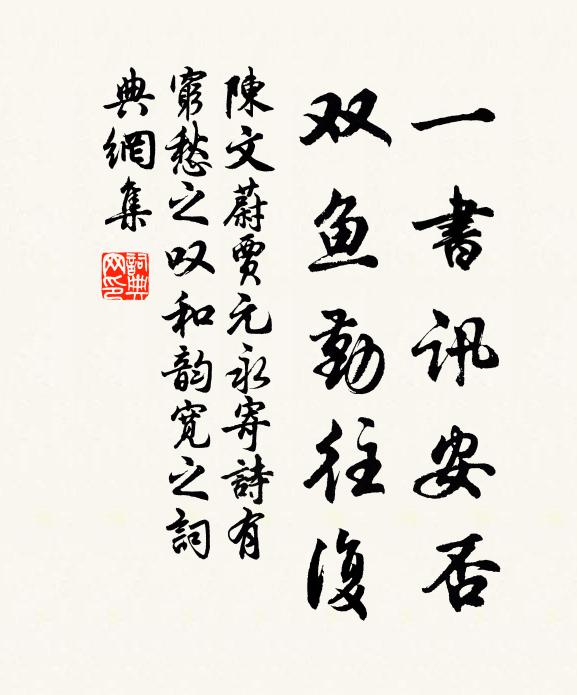 一書訊安否
双鱼勤往復
陳文蔚賈元永寄詩有
窮愁之叹和韵寬之詞
典網集
詞典网印